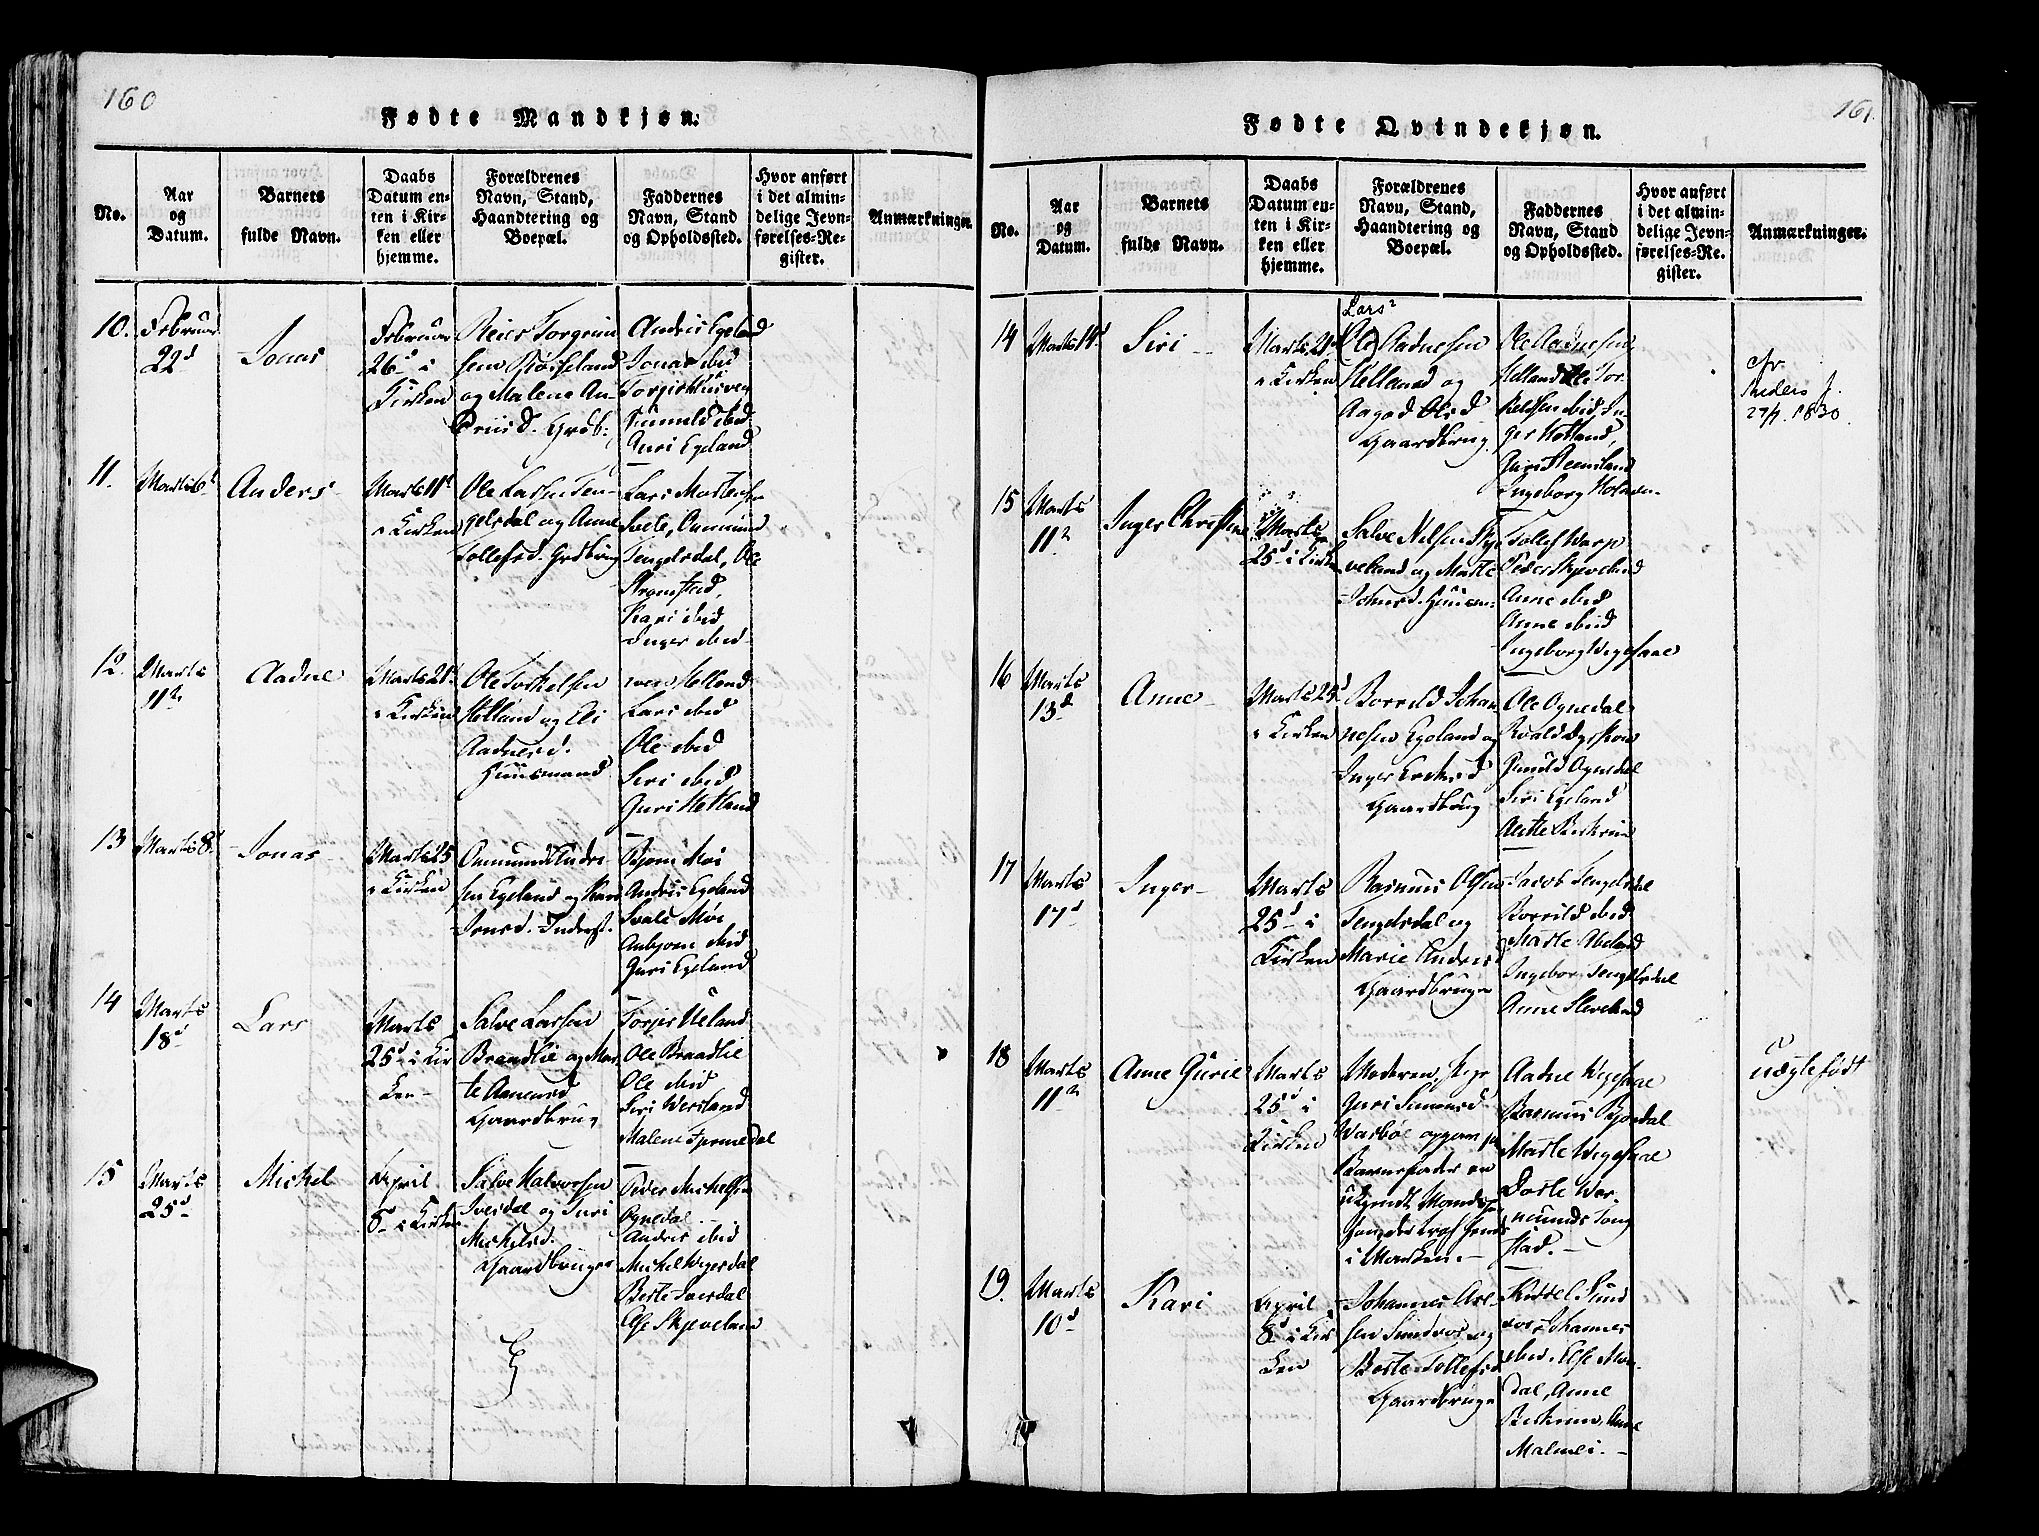 160
Fødte Mandkjøn.
No.
Aar
og
Datum.
Barnets
fulde Navn.
Daabs
Datum en-
ten i Kir-
ken eller
hjemme.
Forældrenes
Navn, Stand,
Haandtering og
Boepæl.
Faddernes
Navn, Stand
og Opholdssted.
Hvor anført
i det almin-
delige Jevn-
førelses-Re-
gister.
Anmærkninger.
10.
Februar
22d
Jonas
Februar
26d i
Kirken
Reier Torgrim
sen
og Malene An-
Andris Egeland
Jonas ibid
Guri Egeland
11.
Marts 6t
Anders
Marts 11t
i Kirken
Ole Larsen Ten-
gelsdal og Anne
Tollefsd. Grdbrug
Lars Mortens
Svete, Ommund
Tengelsdal, Ole
Kari ibid
Inger ibid
12.
Marts
11te
Aadne
Marts 21
i Kirken
Ole Torkelsen
Helland og Eli
Aadnesd.
Huusmand
Helland
Lars ibid
Ole ibid
Siri ibid
Guri Hetland
13
Marts 8t
Jonas
Marts 25
i Kirken
Ommund Endre
sen Egeland og Kari
Jonsd. Inderst.
Bjorn Moi
Andris Egeland
Svald Moi
Anbjorn ibid
Guri Egeland
14
Marts
18d
Lars
Marts
25d i Kir
ken
Salve Larsen
Braadlie og Mar
te
Gaardbrug
Torjer Ueland
Ole Braadlie
Ole ibid
Siri Wersland
Malene
15
Marts
25d
Mickel
April
8d i Kirken
Salve Halvorsen
Ivesdal og Siri
Mickelsd.
Gaardbruger
Peder Michelsen
Ognedal
Andris ibid
Mickel Wegesdal
Berte Ivesdal
Else Skjeveland
161.
Fødte Qvindekjøn.
No.
Aar
og
Datum.
Barnets
fulde Navn.
Daabs
Datum en-
ten i Kir-
ken eller
hjemme.
Forældrenes
Navn, Stand,
Haandtering og
Boepæl.
Faddernes
Navn, Stand
og Opholdssted.
Hvor anført
i det almin-
delige Jevn-
førelses-Re-
gister.
Anmærkninger.
14
Marts 14d
Siri
Marts 21d
i Kirken
Lars?
Ole Aadnesen
Helland og
Aagod Olsd
Gaardbrug
Ole Aadnesen
Helland Ole Tor-
kelsen ibid, In-
ger Hetland,
Guri Steensland
Ingeborg
cfr.
27/7. 1830.
15
Marts
11te
Inger Christine
Marts
25d i Kirken
Salve Nilsen Skje
veland og Marte
Huusm.
Tollef Warp
Peder Skjeveland
Anne ibid
Anne ibid
Ingeborg Wegesaae
16
Marts
13d
Anne
Marts 25d
i Kirken
Borrild Johan
nesen Egeland og
Inger
Gaardbrug
Ole Ognedal
Ognedal
Siri Egeland
17
Marts
17d
Inger
Marts
25d i
Kirken
Rasmus Olsen
Tengelsdal og
Marie Andersd
Gaardbruger
Jacob Tengelsdal
Borrild ibid
Marte Abeland
Ingebor Tengelsdal
Anne Sleveland
18
Marts
11te
Anne Gurie
Marts
25d i
Kirken
Moderen, Pige
Guri Simonsd
Wasbøe opgem
Barnefader en
ukjendt Mandsper
son, der traf hende
i Marken.
Aadne Wegesaae
Rasmus Bjordal
Marte Wegesaae
Dorte War-
stad.
uægtefødt
19.
Marts
10d
Kari
April
8d i Kir
ken
Johannes Ael-
sen Sundvor og
Berte Tollefsd
Gaardbruger
Kittel Sund
vor, Johannes
ibid, Else Mæ-
dal, Anne
Anne
Malmei.